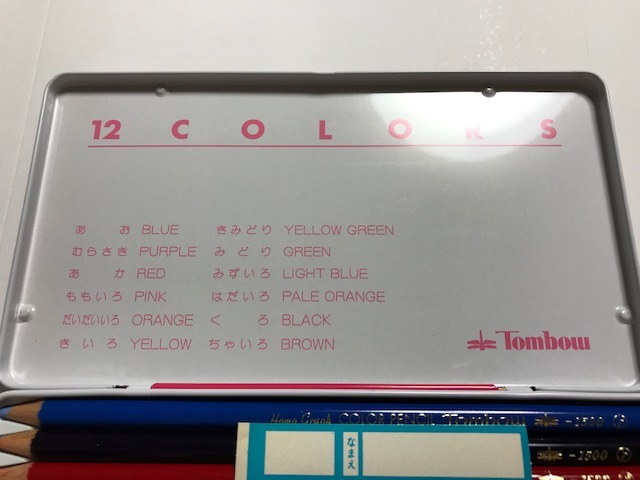 12 COLORS
あお BLUE きみどり YELLOW GREEN
むらさき PURPLE みどり GREEN
あか RED みずいろ LIGHT BLUE
ももいろ PINK はだいろ PALE ORANGE
だいだいいろ ORANGE くろ BLACK
きいろ YELLOW ちゃいろ BROWN
Tombow
Homo Graph COLOR PENCIL Tombow -1500
なまえ
-1500
-1500